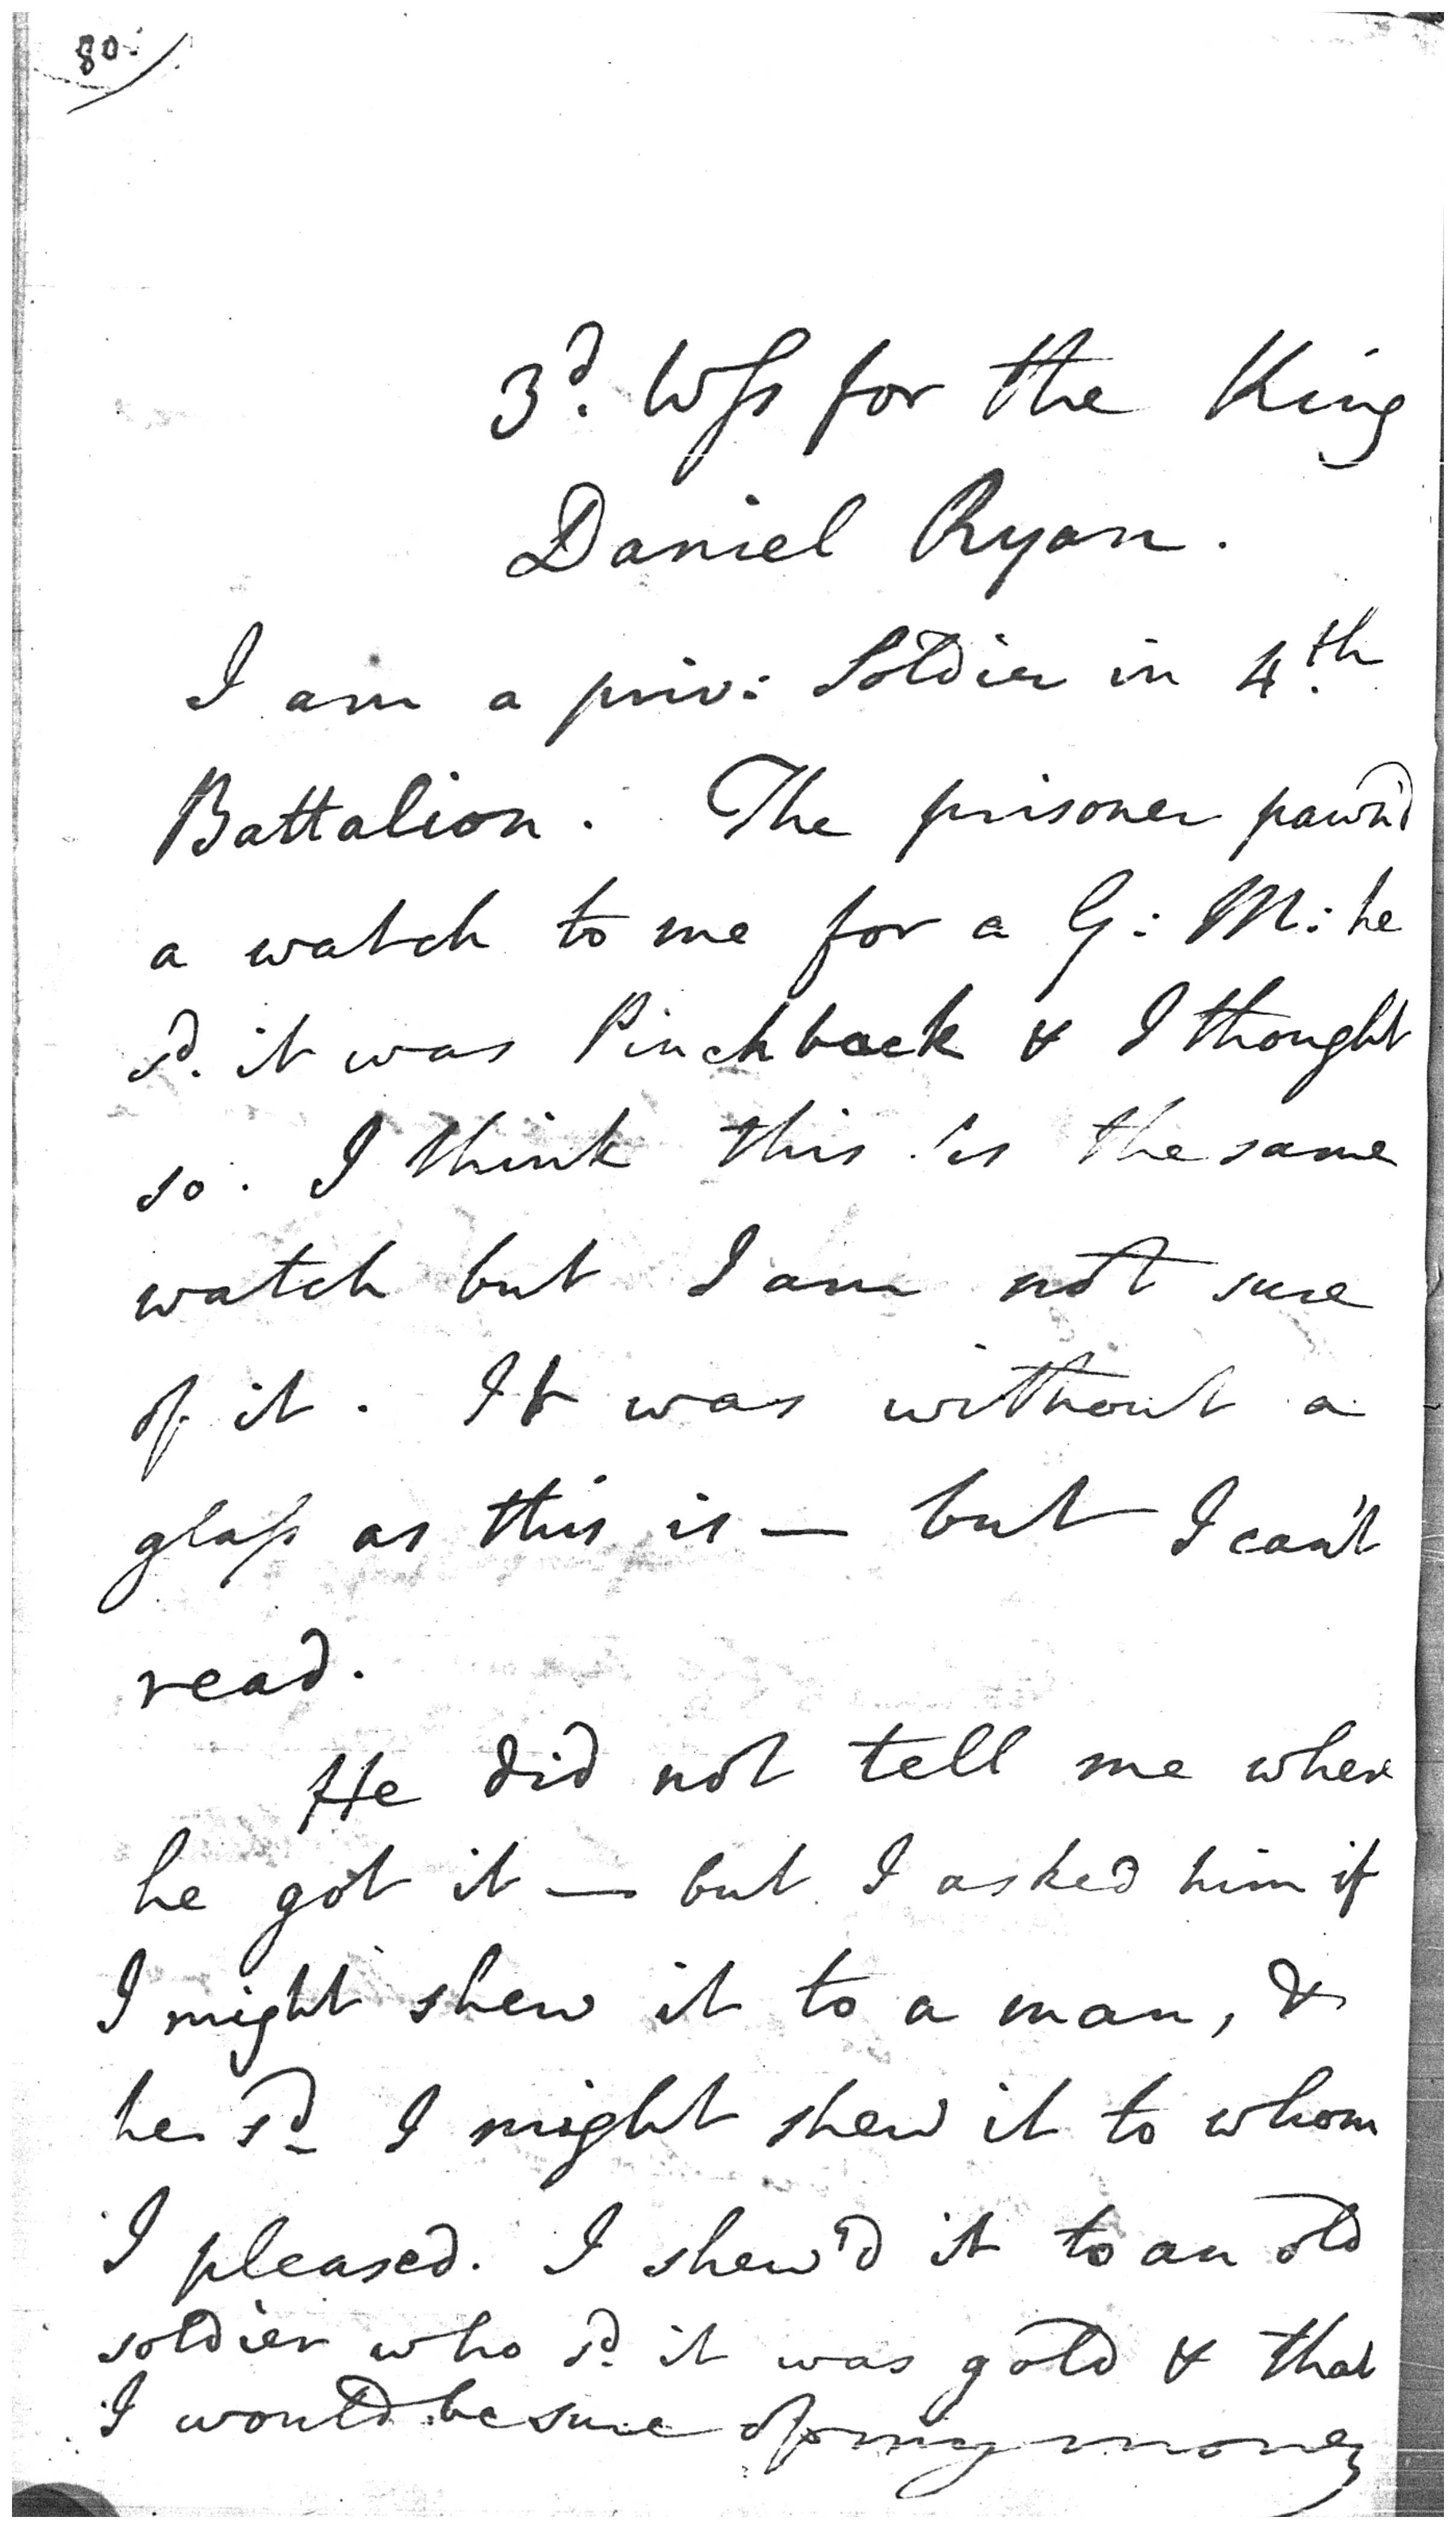 80.
3d. Wss for the King
Daniel Ryan.
I am a priv: Soldier in 4th
Battalion. The prisoner pawn'd
a watch to me for a G: M: he
sd. it was Pinchback & I thought
so. I think this is the same
watch but I am not sure
of it. It was without a
glass as this is — but I can't
read.
He did not tell me where
he got it — but I asked him if
I might shew it to a man, &
he sd I might shew it to whom
I pleased. I shew'd it to an old
soldier who sd. it was gold & that
I would be sure of my money